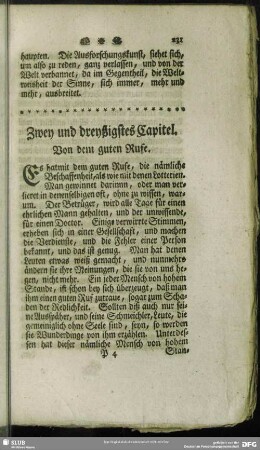 231
haupten. Die Ausforschungskunst, siehet sich,
um also zu reden, ganz verlassen, und von der
Welt verbannet, da im Gegentheil, die Welt-
weisheit der Sinne, sich immer, mehr und
mehr, ausbreitet.
Zwey und dreyßigstes Capitel.
Von dem guten Rufe.
Es hat mit dem guten Rufe, die nämliche
Beschaffenheit, als wie mit denen Lotterien.
Man gewinnet darinnn, oder man ver-
lieret in denenselbigen oft, ohne zu wissen, war-
um. Der Betrüger, wird alle Tage für einen
ehrlichen Mann gehalten, und der unwissende,
für einen Doctor. Einige verwirrte Stimmen,
erheben sich in einer Gesellschaft, und machen
die Verdienste, und die Fehler einer Person
bekannt, und das ist genug. Man hat denen
Leuten etwas weiß gemacht, und nunmehro
ändern sie ihre Meinungen, die sie von uns he-
gen, nicht mehr. Ein jeder Mensch von hohem
Stande, ist schon bey sich überzeugt, daß man
ihm einen guten Ruf zutraue, sogar zum Scha-
den der Redlichkeit. Sollten dis auch nur sei-
ne Ausspäher, und seine Schmeichler, Leute, die
gemeiniglich ohne Seele sind, seyn, so werden
sie Wunderdinge von ihm erzählen. Unterdes-
sen hat dieser nämliche Mensch von hohem
P 4 Stan-
SLUB
DFG